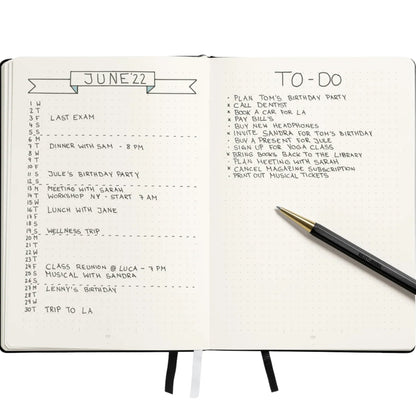 JUNE'22
1 W
2 T
3 F LAST EXAM
4 S
5 S
6 M
7 T DINNER WITH SAM - 8 PM
8 W
9 T
10 F
11 S JULE'S BIRTHDAY PARTY
12 S
13 M MEETING WITH SARAH
14 T WORKSHOP NY - START 7 AM
15 W
16 T LUNCH WITH JANE
17 F
18 S
19 S WELLNESS TRIP
20 M
21 T
22 W
23 T
24 F CLASS REUNION @ LUCA - 7 PM
25 S MUSICAL WITH SANDRA
26 S
27 M LENNY'S BIRTHDAY
28 T
29 W
30 T TRIP TO LA
TO-DO
• PLAN TOM'S BIRTHDAY PARTY
x CALL DENTIST
• BOOK A CAR FOR LA
x PAY BILL'S
• BUY NEW HEADPHONES
x INVITE SANDRA FOR TOM'S BIRTHDAY
• BUY A PRESENT FOR JULE
• SIGN UP FOR YOGA CLASS
x BRING BOOKS BACK TO THE LIBRARY
• PLAN MEETING WITH SARAH
x CANCEL MAGAZINE SUBSCRIPTION
• PRINT OUT MUSICAL TICKETS